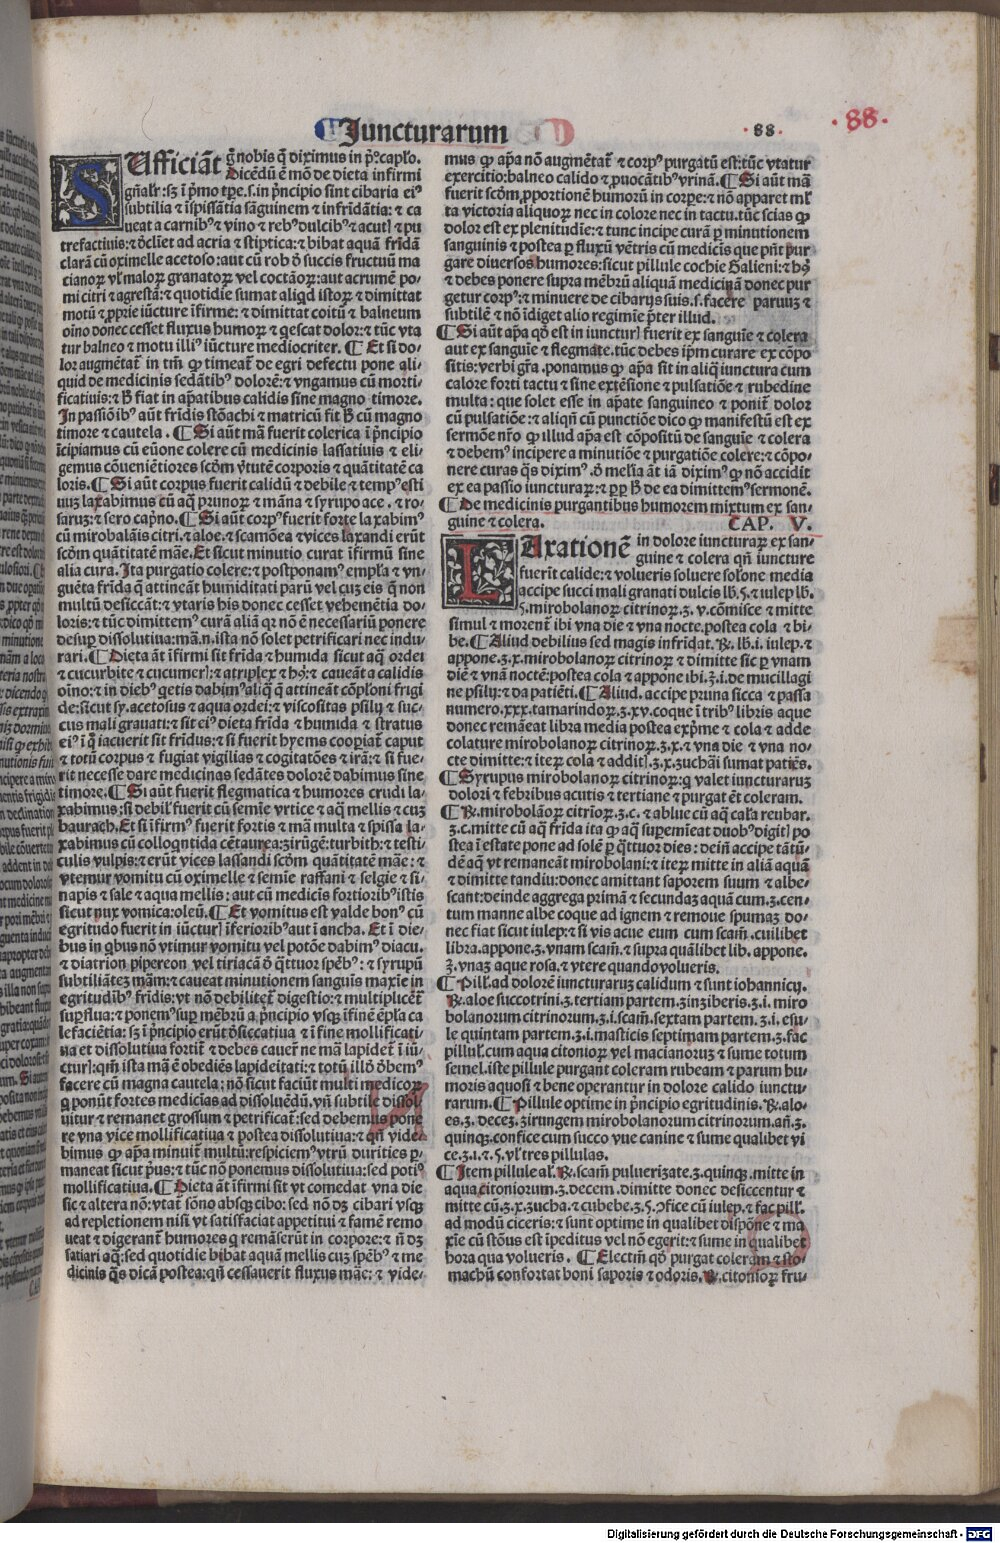 Iuncturarum
.88.
.88.
SUfficiãt g̃ nobis q̃ diximus in p̃º capl̃o.
Dicẽdũ ẽ mõ de dieta infirmi
gñalr̃: sꝫ ĩ p̃mo tp̃e .s. in p̃ncipio sint cibaria ei⁹
subtilia ⁊ ĩspissãtia sãguinem ⁊ infrĩdãtia: ⁊ ca
ueat a carnib⁹ ⁊ vino ⁊ reb⁹ dulcib⁹ ⁊ acut] ⁊ pu
trefactiuis: ⁊ õcl̃iet ad acria ⁊ stiptica: ⁊ bibat aquã frĩdã
clarã cũ oximelle acetoso: aut cũ rob õ succis fructuũ ma
cianoꝝ vl̓ maloꝝ granatoꝝ vel coctãoꝝ: aut acrumẽ po-
mi citri ⁊ agrestã: ⁊ quotidie sumat aliqd istoꝝ ⁊ dimittat
motũ ꝓprie iũcture ĩfirme: ⁊ dimittat coitũ ⁊ balneum
oĩno donec cesset fluxus humoꝝ ⁊ q̃escat dolor: ⁊ tũc vta
tur balneo ⁊ motu illi⁹ iũcture mediocriter. ¶ Et si do-
lor augmẽtat̃ in tm̃ ꝙ timeat̃ de egri defectu pone ali-
quid de medicinis sedãtib⁹ dolorẽ: ⁊ vngamus cũ morti-
ficatiuis: ⁊ ɧ fiat in ap̃atibus calidis sine magno timore.
In passiõib⁹ aũt frĩdis stõachi ⁊ matricũ fit ɧ cũ magno
timore ⁊ cautela. ¶ Si aũt mã fuerit colerica ĩ p̃ncipio
ĩcipiamus cũ eũone colere cũ medicinis lassatiuis ⁊ eli-
gemus cõueniẽtiores scõm v̓tutẽ corporis ⁊ quãtitatẽ ca
loris. ¶ Si aũt corpus fuerit calidũ ⁊ debile ⁊ temp⁹ esti
uuꝫ laxabimus cũ aq̃ prunoꝝ ⁊ mãna ⁊ syrupo ace. ⁊ ro-
saruꝫ: ⁊ sero cap̃no. ¶ Si aũt corp⁹ fuerit forte laxabim⁹
cũ mirobalãis citri. ⁊ aloe. ⁊ scamõea ⁊ vices laxandi erũt
scõm quãtitatẽ mãe. Et sicut minutio curat ĩfirmũ sine
alia cura. Ita purgatio colere: ⁊ postponam⁹ empl̃a ⁊ vn-
guẽta frĩda q̃ attineãt humiditati parũ vel cuꝫ eis q̃ non
multũ desiccãt: ⁊ vtaris his donec cesset vehemẽtia do-
loris: ⁊ tũc dimittem⁹ curã aliã qꝛ nõ ẽ necessariũ ponere
desuꝑ dissolutiua: mã.n. ista nõ solet petrificari nec indu-
rari. ¶ Dieta ãt ĩfirmi sit frĩda ⁊ humida sicut aq̃ ordei
⁊ cucurbite ⁊ cucumer]: ⁊ atriplex ⁊ hꝰ: ⁊ caueãt a calidis
oĩno: ⁊ in dieb⁹ q̃etis dabim⁹ aliq̃ q̃ attineãt cõpl̃oni frigi
de: sicut sy. acetosus ⁊ aqua ordei: ⁊ viscositas psilij ⁊ suc-
cus mali grauati: ⁊ sit ei⁹ dieta frĩda ⁊ humida ⁊ stratus
ei⁹ ĩ q̃ iacuerit sit frĩdus: ⁊ si fuerit hyems cooꝑiat̃ caput
⁊ totũ corpus ⁊ fugiat vigilias ⁊ cogitatões ⁊ irã: ⁊ si fue-
rit necesse dare medicinas sedãtes dolorẽ dabimus sine
timore. ¶ Si aũt fuerit flegmatica ⁊ humores crudi la-
xabimus: si debil̓ fuerit cũ semĩe vrtice ⁊ aq̃ mellis ⁊ cuꝫ
baurach. Et si ĩfirm⁹ fuerit fortis ⁊ mã multa ⁊ spissa la-
xabimus cũ colloqntida cẽtaurea: zirũgẽ: turbith: ⁊ testi-
culis vulpis: ⁊ erũt vices lassandi scõm quãtitatẽ mãe: ⁊
vtemur vomitu cũ oximelle ⁊ semĩe raffani ⁊ selgie ⁊ si-
napis ⁊ sale ⁊ aqua mellis: aut cũ medicis fortiorib⁹ istis
sicut nux vomica: oleũ. ¶ Et vomitus est valde bon⁹ cũ
egritudo fuerit in iũctur] ĩferiorib⁹ aut ĩ ancha. Et ĩ die-
bus in qbus nõ vtimur vomitu vel potõe dabim⁹ diacu.
⁊ diatrion pipereon vel tiriacã õ q̃ttuor spẽb⁹: ⁊ syrupũ
subtiliãteꝫ mãm: ⁊ caueat minutionem sanguis maxĩe in
egritudĩb⁹ frĩdis: vt nõ debilitet̃ digestio: ⁊ multiplicẽt̃
suꝑflua: ⁊ ponem⁹ suꝑ mẽbrũ a p̃ncipio vsqꝫ ĩ finẽ ẽpl̃a ca
lefaciẽtia: sꝫ ĩ p̃ncipio erũt õsiccatiua ⁊ ĩ fine mollificati-
ua et dissolutiua fortit̃ ⁊ debes cauer̃ ne mã lapidet̃ ĩ iũ-
ctur]: qm̃ ista mã ẽ obediẽs lapideitati: ⁊ totũ illõ õbem⁹
facere cũ magna cautela: nõ sicut faciũt multi medicoꝝ
q̃ ponũt fortes medicĩas ad dissoluẽdũ. vñ subtile dissol-
uitur ⁊ remanet grossum ⁊ petrificat̃: sed debemus pone
re vna vice mollificatiua ⁊ postea dissolutiua: ⁊ qñ vide-
bimus ꝙ ap̃a minuit̃ multũ: respiciem⁹ vtrũ durities ꝑ-
maneat sicut p̃us: ⁊ tũc nõ ponemus dissolutiua: sed poti⁹
mollificatiua. ¶ Dieta ãt ĩfirmi sit vt comedat vna die
sic ⁊ altera nõ: vtat̃ ieĩuno absqꝫ cibo: sed nõ dꝫ cibari vsqꝫ
ad repletionem nisi vt satisfaciat appetitui ⁊ famẽ remo
ueat ⁊ digerant̃ humores q̃ remãserũt in corpore: ⁊ ñ dꝫ
satiari aq̃: sed quotidie bibat aquã mellis cuꝫ spẽb⁹ ⁊ me
dicinis q̃s dicã postea: qñ cessauerit fluxus mãe: ⁊ vide-
mus ꝙ ap̃a nõ augmẽtat̃ ⁊ corp⁹ purgatũ est: tũc vtatur
exercitio: balneo calido ⁊ ꝓuocãtib⁹ vrinã. ¶ Si aũt mã
fuerit scõm ꝓportionẽ humorũ in corpe: ⁊ nõ apparet ml̓
ta victoria aliquoꝝ nec in colore nec in tactu. tũc scias ꝙ
dolor est ex plenitudĩe: ⁊ tunc incipe curam ꝑ minutionem
sanguinis ⁊ postea ꝑ fluxũ vẽtris cũ medicĩs que pñt pur
gare diuersos humores: sicut pillule cochie Galieni: ⁊ hꝰ
⁊ debes ponere supra mẽbrũ aliquã medicinã donec pur
getur corp⁹: ⁊ minuere de cibarijs suis .s. facere paruuꝫ ⁊
subtilẽ ⁊ nõ ĩdiget alio regimĩe p̃ter illud.
¶ Si aũt ap̃a qõ est in iunctur] fuerit ex sanguĩe ⁊ colera
aut ex sanguĩe ⁊ flegmate. tũc debes ip̃m curare ex cõpo
sitis: verbi gr̃a. ponamus ꝙ ap̃a sit in aliq̃ iunctura cum
calore forti tactu ⁊ sine extẽsione ⁊ pulsatiõe ⁊ rubedine
multa: que solet esse in ap̃ate sanguineo ⁊ ponit̃ dolor
cũ pulsatiõe: ⁊ aliqñ cũ punctiõe dico ꝙ manifestũ est ex
sermõe nr̃o ꝙ illud ap̃a est cõpositũ de sanguĩe ⁊ colera
⁊ debem⁹ incipere a minutiõe ⁊ purgatiõe colere: ⁊ cõpo-
nere curas q̃s dixim⁹. õ mel̃ia ãt iã dixim⁹ ꝙ nõ accidit
ex ea passio iuncturaꝝ: ⁊ ꝓp ɧ de ea dimittem⁹ sermonẽ.
¶ De medicinis purgantibus humorem mixtum ex san-
guine ⁊ colera. CAP. V.
LAxationẽ in dolore iuncturaꝝ ex san-
guine ⁊ colera qñ iuncture
fuerĩt calide: ⁊ volueris soluere sol̃one media
accipe succi mali granati dulcis lb̃.5. ⁊ iulep lb̃.
5. mirobolanoꝝ citrinoꝝ.ʒ.v. cõmisce ⁊ mitte
simul ⁊ morent̃ ibi vna die ⁊ vna nocte. postea cola ⁊ bi-
be. ¶ Aliud debilius sed magis infrĩdat. ℞. lb̃.i. iulep. ⁊
appone.ʒ.x. mirobolanoꝝ citrinoꝝ ⁊ dimitte sic ꝑ vnam
diẽ ⁊ vnã noctẽ: postea cola ⁊ appone ibi.ʒ.i. de mucillagi
ne psilij: ⁊ da patiẽti. ¶ Aliud. accipe pruna sicca ⁊ passa
numero.xxx. tamarindoꝝ.ʒ.xv. coque ĩ trib⁹ libris aque
donec remãeat libra media postea exp̃me ⁊ cola ⁊ adde
colature mirobolanoꝝ citrinoꝝ.ʒ.x. ⁊ vna die ⁊ vna no-
cte dimitte: ⁊ iteꝝ cola ⁊ addit].ʒ.x. zuchãi sumat patiẽs.
¶ Syrupus mirobolanoꝝ citrinoꝝ: q̃ valet iuncturaruꝫ
dolori ⁊ febribus acutis ⁊ tertiane ⁊ purgat ẽt coleram.
¶ ℞. mirobolãoꝝ citrioꝝ.ʒ.c. ⁊ ablue cũ aq̃ cal̓a reubar.
ʒ.c. mitte cũ aq̃ frĩda ita ꝙ aq̃ supemĩeat duob⁹ digit] po
stea ĩ estate pone ad solẽ ꝑ q̃ttuor dies: deiñ accipe tãtũ-
dẽ aq̃ vt remaneãt mirobolani: ⁊ iteꝝ mitte in aliã aquã
⁊ dimitte tandiu: donec amittant saporem suum ⁊ albe-
scant: deinde aggrega primã ⁊ secundaꝫ aquã cum.ʒ.cen-
tum manne albe coque ad ignem ⁊ remoue spumaꝫ do-
nec fiat sicut iulep: ⁊ si vis acue eum cum scam̃. cuilibet
libra. appone.ʒ. vnam scam̃. ⁊ supra quãlibet lib. appone.
ʒ. vnaꝫ aque rosa. ⁊ vtere quando volueris.
¶ Pill̓. ad dolorẽ iuncturaruꝫ calidum ⁊ sunt iohannicij.
℞. aloe succotrini.ʒ. tertiam partem.ʒinziberis.ʒ.i. miro
bolanorum citrinorum.ʒ.i. scam̃. sextam partem.ʒ.i. esu-
le quintam partem.ʒ.i. masticis septimam partem.ʒ. fac
pillul̓. cum aqua citonioꝝ vel macianoruꝫ ⁊ sume totum
semel. iste pillule purgant coleram rubeam ⁊ parum hu-
moris aquosi ⁊ bene operantur in dolore calido iunctu-
rarum. ¶ Pillule optime in p̃ncipio egritudinis. ℞. alo-
es.ʒ. deceꝫ. zirungem mirobolanorum citrinorum. añ.ʒ.
quinqꝫ. confice cum succo vue canine ⁊ sume qualibet vi
ce.ʒ.i. ⁊.5. vl̓ tres pillulas.
¶ Item pillule al̓. ℞. scam̃ puluerizate.ʒ. quinqꝫ. mitte in
aqua citoniorum.ʒ. decem. dimitte donec desiccentur ⁊
mitte cũ.ʒ.x. zucha. ⁊ cubebe.ʒ.5. ꝯfice cũ iulep. ⁊ fac pill̓.
ad modũ ciceris: ⁊ sunt optime in qualibet dispõne ⁊ ma
xĩe cũ stõus est ĩpeditus vel nõ egerit: ⁊ sume in qualibet
hora qua volueris. ¶ Electm̃ qõ purgat coleram ⁊ sto-
machũ confortat boni saporis ⁊ odoris. ℞. citonioꝝ fru-
Digitalisierung gefördert durch die Deutsche Forschungsgemeinschaft - DFG